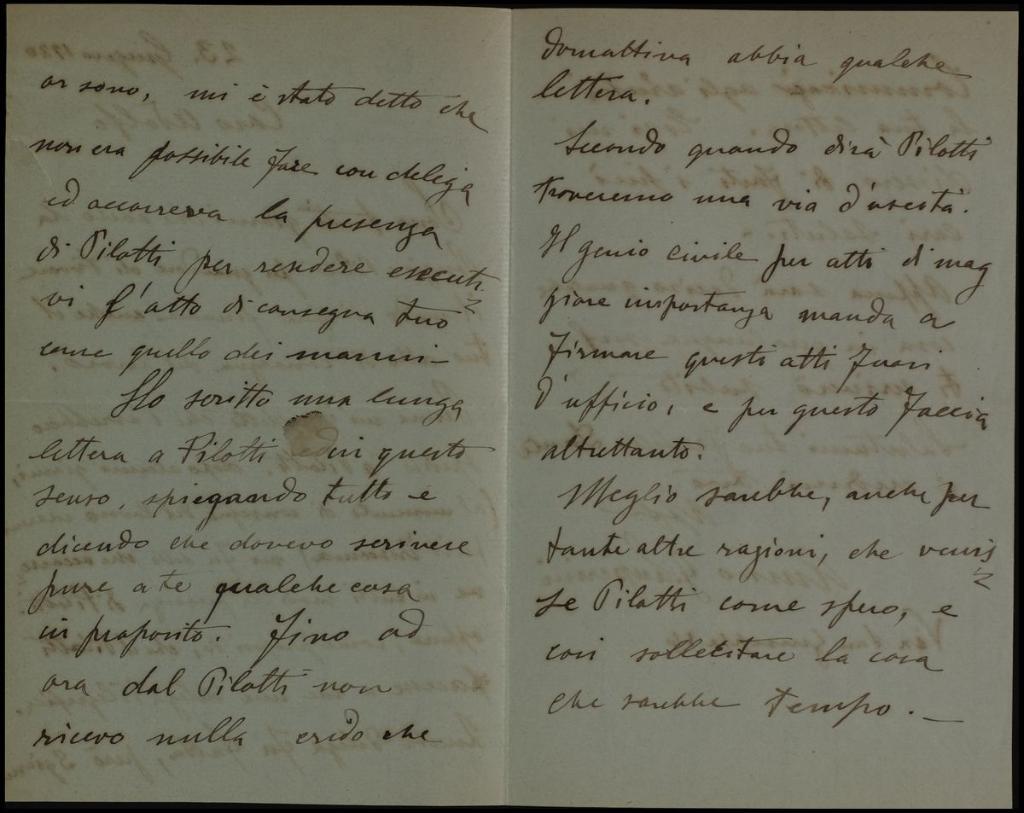 or sono, mi è stato detto che
non era possibile fare con delega
ed occorreva la presenza
di Pilotti per rendere esecuti
vi l'atto di consegna tuo
come quello dei
Ho scritto una lunga
lettera a Pilotti in questo
senso, spiegando tutto e
dicendo che dovevo scrivere
pure a te qualche cosa
in proposito. Fino ad
ora dal Pilotti non
ricevo nulla credo che
domattina abbia qualche
lettera.
Secondo quando dirà Pilotti
troveremo una via d'uscita.
Il genio civile per atti di mag
giore importanza manda a
firmare questi atti fuori
d'ufficio, e per questo faccia
altrettanto.
Meglio sarebbe, anche per
tante altre ragioni, che venis
se Pilotti come spero, e
così sollecitare la cosa
che sarebbe tempo. —